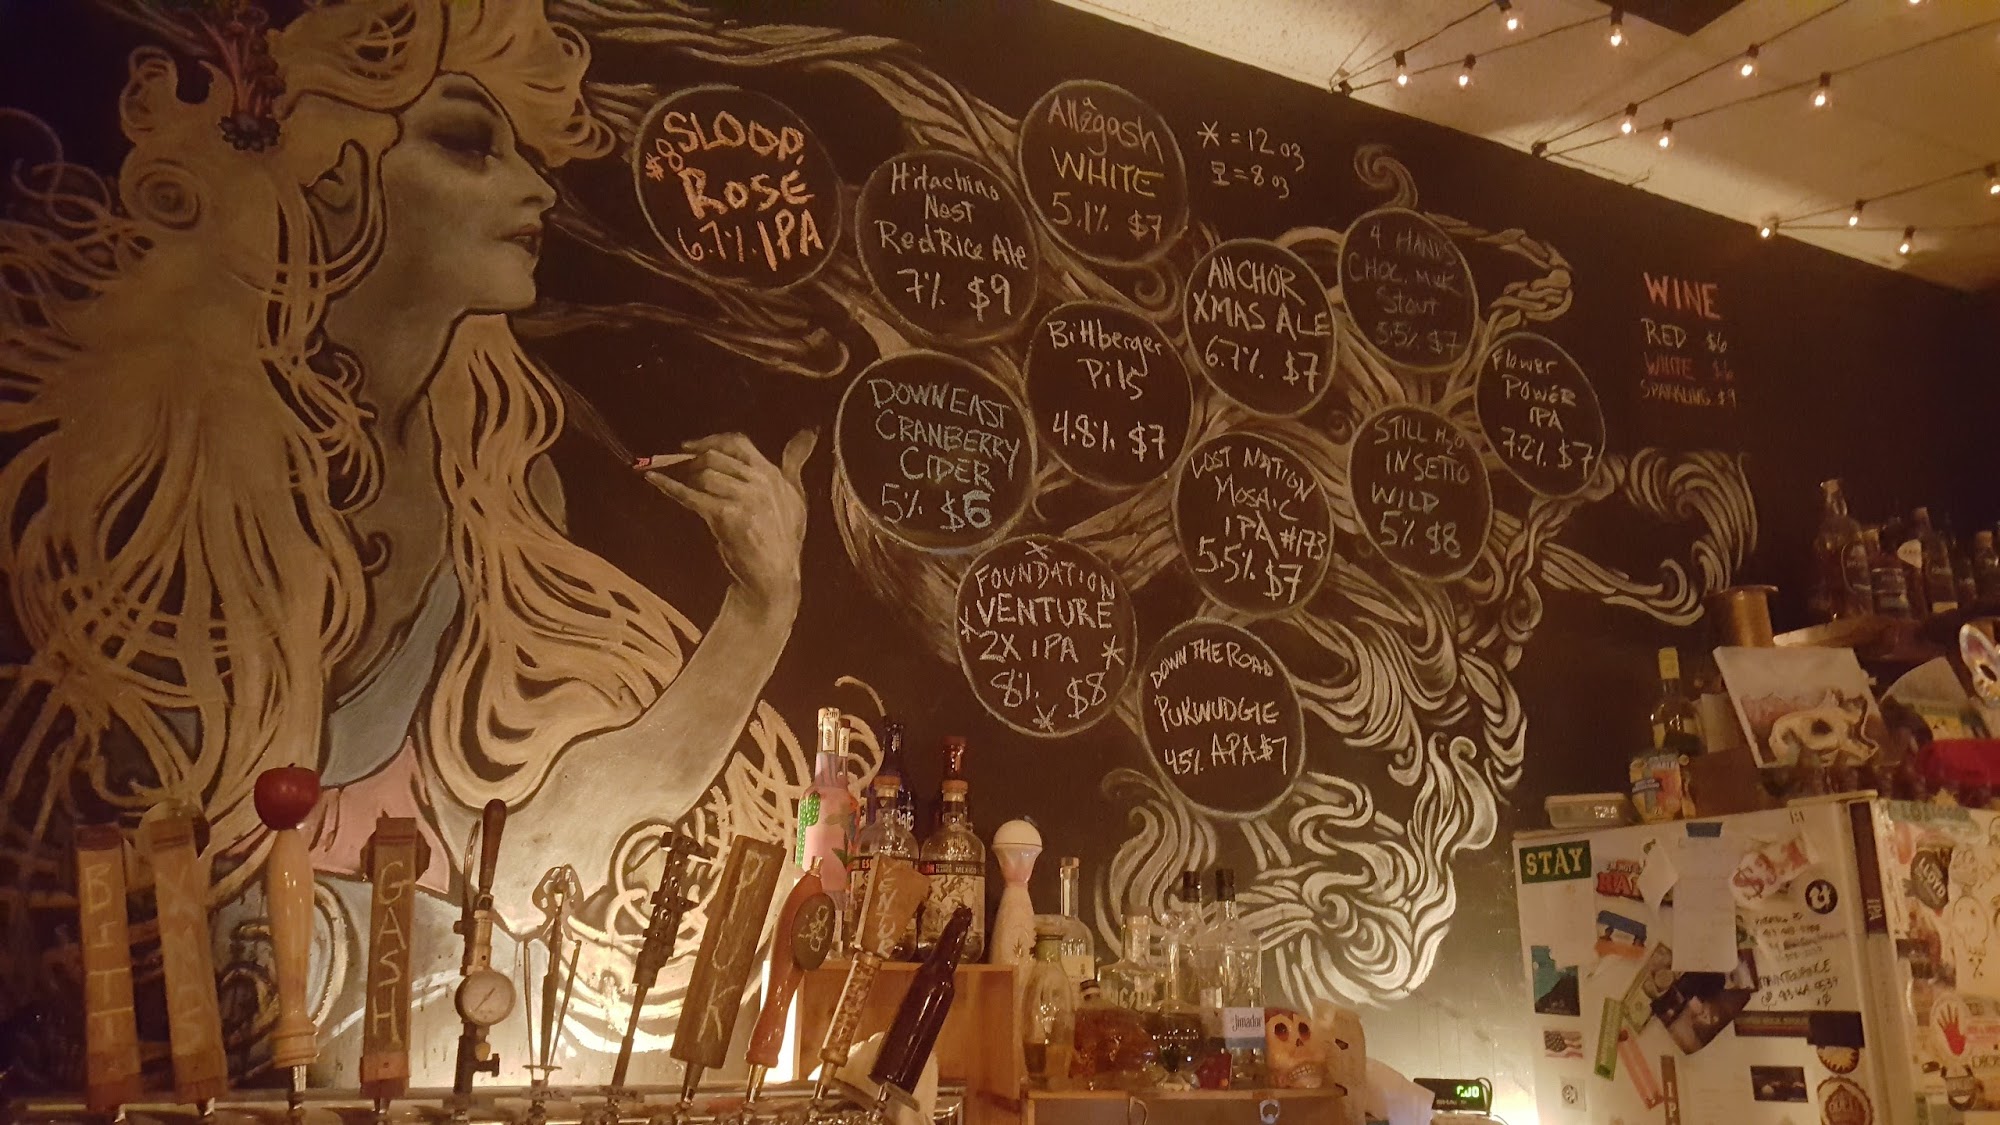 SLOOP
$8
ROSÉ
6.7% IPA
Hitachino
Nest
Red Rice Ale
7% $9
Allagash
WHITE
5.1% $7
* = 12 oz
= 8 oz
DOWNEAST
CRANBERRY
CIDER
5% $6
Bittberger
Pils
4.8% $7
ANCHOR
XMAS ALE
6.7% $7
4 HANDS
CHOC. MILK
Stout
5.5% $7
Flower
POWER
IPA
7.2% $7
WINE
RED $6
WHITE $6
SPARKLING $9
STILL H2O
INSETTO
WILD
5% $8
LOST NATION
MOSAIC
IPA #173
5.5% $7
*
FOUNDATION
* VENTURE
2X IPA *
8% $8
*
DOWN THE ROAD
PUKWUDGIE
4.5% APA $7
BITT
XMAS
GASH
PUCK
VENTURE
STAY
MEXICO
el Jimador
MAINTENANCE
IPA